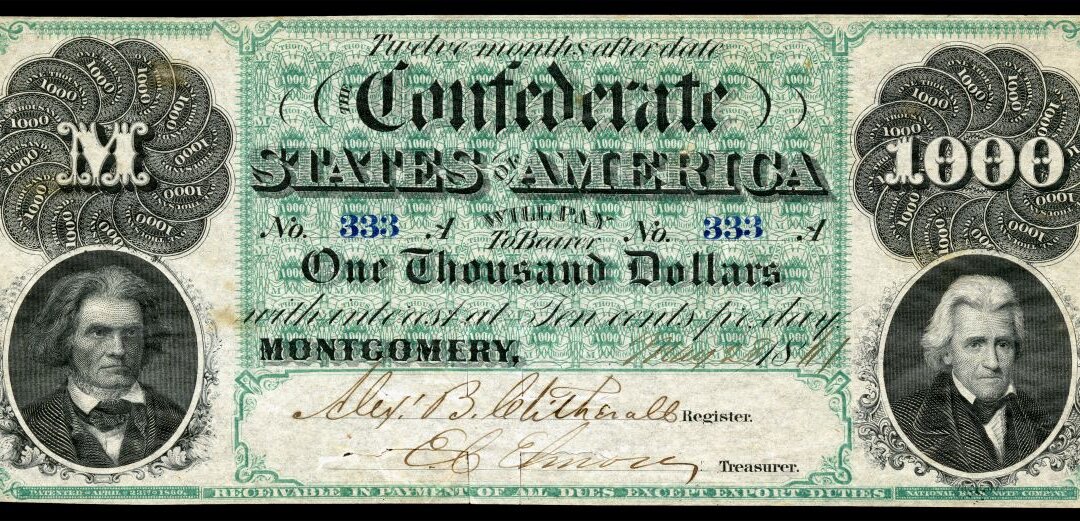 Twelve months after date
THE Confederate
STATES OF AMERICA
M
1000
No. 333 A WILL PAY To Bearer No. 333 A
One Thousand Dollars
with interest at Ten cents per day
MONTGOMERY, May 28 1861
Alexr B. Clitherall Register.
E C Elmore, Treasurer.
PATENTED APRIL 23RD 1860.
RECEIVABLE IN PAYMENT OF ALL DUES EXCEPT EXPORT DUTIES
NATIONAL BANK NOTE COMPANY